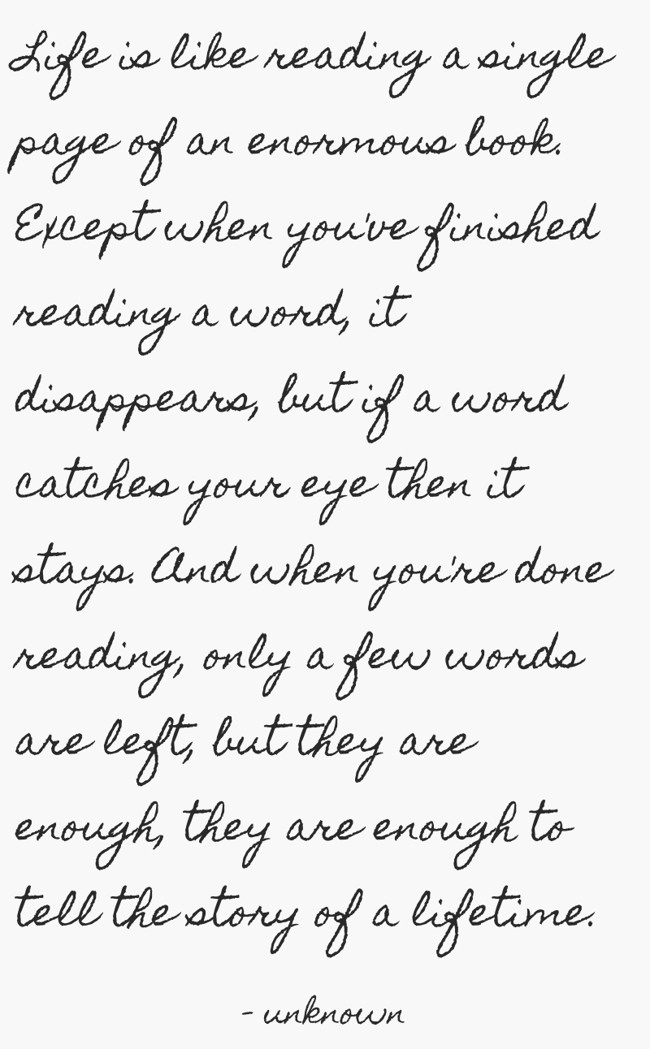 Life is like reading a single
page of an enormous book.
Except when you've finished
reading a word, it
disappears, but if a word
catches your eye then it
stays. And when you're done
reading, only a few words
are left, but they are
enough, they are enough to
tell the story of a lifetime.
- unknown